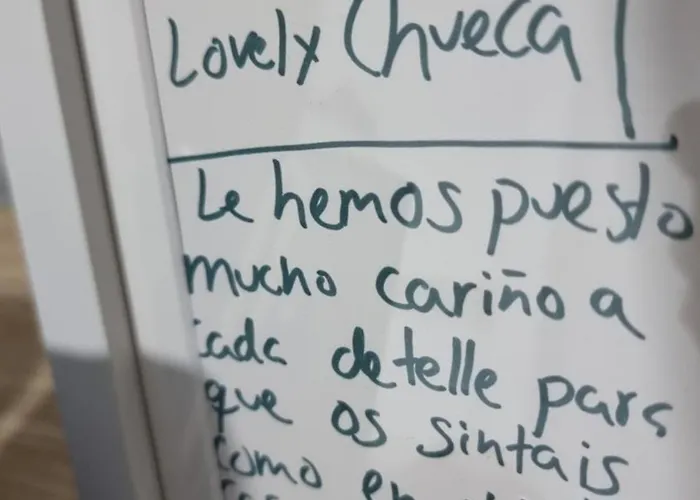 Lovely Chueca
Le hemos puesto
mucho cariño a
cada detelle para
que os sintais
como en